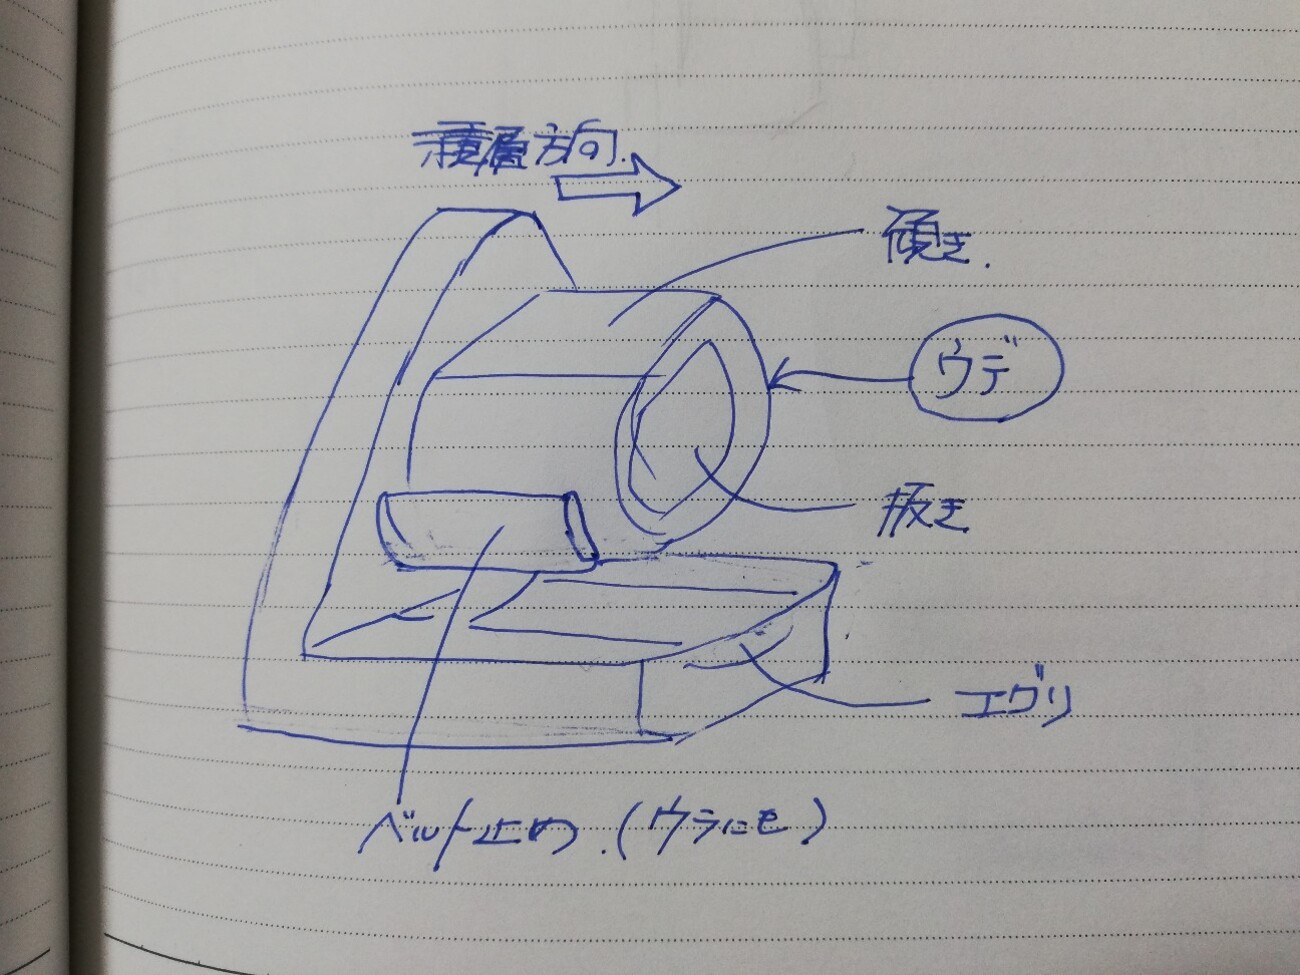 積層方向.
傾き.
ウデ
抜き
エグリ
ベルト止め.(ウラにも)